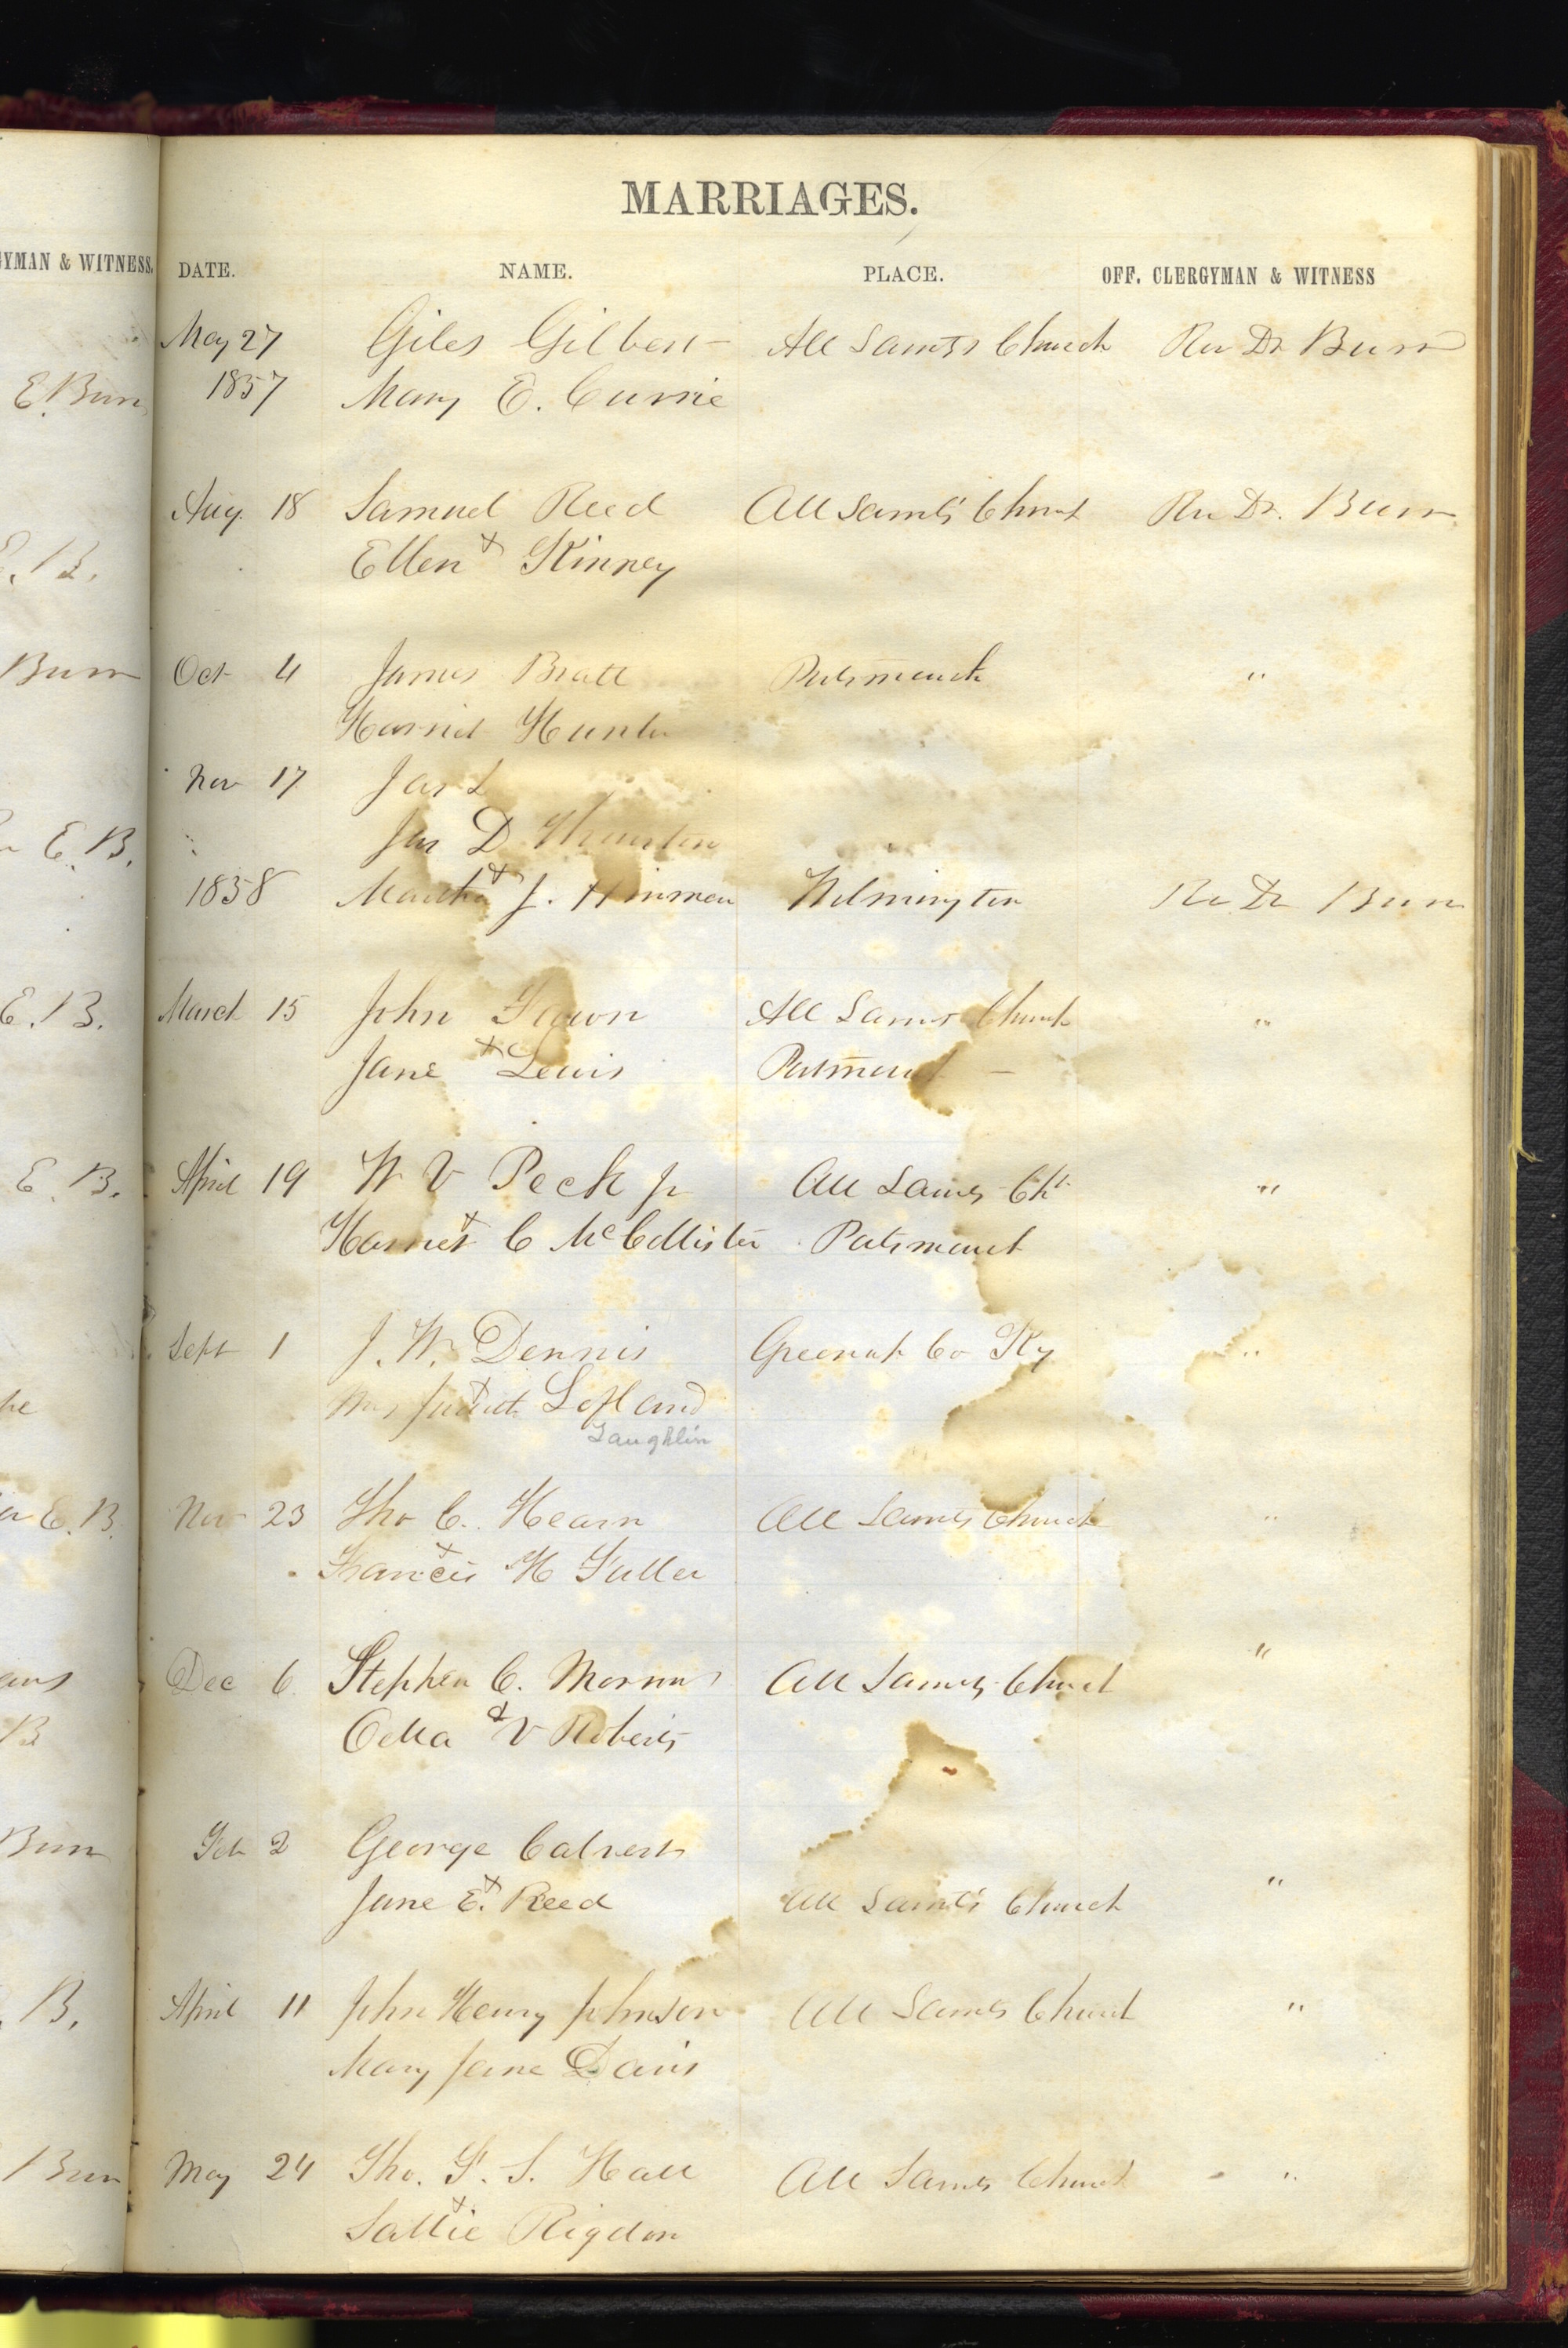 MARRIAGES.
GYMAN & WITNESS. DATE. NAME. PLACE. OFF. CLERGYMAN & WITNESS
May 27 Giles Gilbert All Saints Church Rev Dr Burr
E. Burr 1857 Mary E. Currie
Aug. 18 Samuel Reed All Saints' Church Rev Dr. Burr
E. B. Ellen & Kinney
Burr Oct 4 James Bratt Portsmouth "
Harriet Hunter
Nov 17 Jas
E. B. Jas D Thurston
1838 Martha & J. Hinman Wilmington Rev Dr Burr
E. B. March 15 John Gawn All Saints Church "
Jane & Lewis Portsmouth —
E. B. April 19 W V Peck jr All Saints Ch "
Harriet & C McCollister Portsmouth
Sept 1 J. W. Dennis Greenup Co Ky "
Mrs Judith & Lofland
Laughlin
E. B. Nov 23 Tho C. Hearn All Saints Church "
Francis & H Fuller
Dec 6 Stephen C. All Saints Church "
B & V Roberts
Burr Feb 2 George Calvert
Jane E. & Reed All Saints' Church "
B. April 11 John Henry Johnson All Saints Church "
Mary Jane Davis
Burr May 24 Tho. F. S. Hall All Saints Church "
Sallie & Rigdon